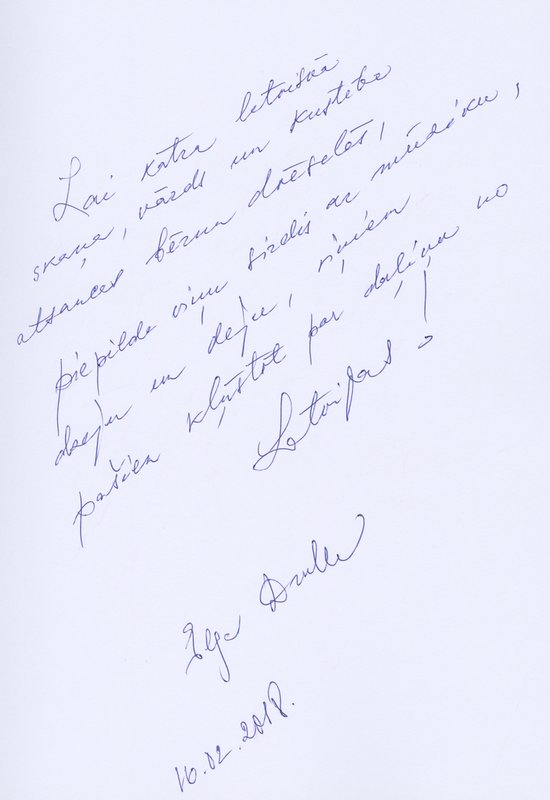 Lai katra latviskā
skaņa, vārds un kustība
atsaucas bērnu dvēselēs,
piepilda viņu sirdis ar mūziku,
dzeju un deju, viņiem
pašiem kļūstot par daļiņu no
Latvijas!
Ilga
16.02.2018.